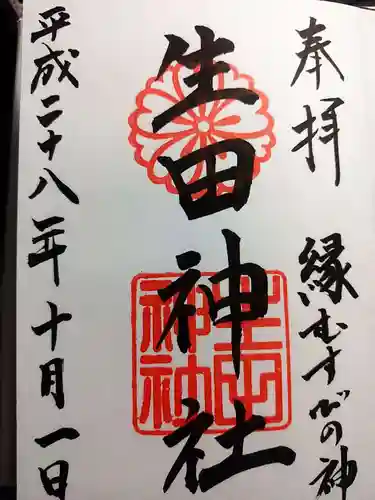 奉拝 縁むすびの神
生田神社
平成二十八年十月一日
生田神社